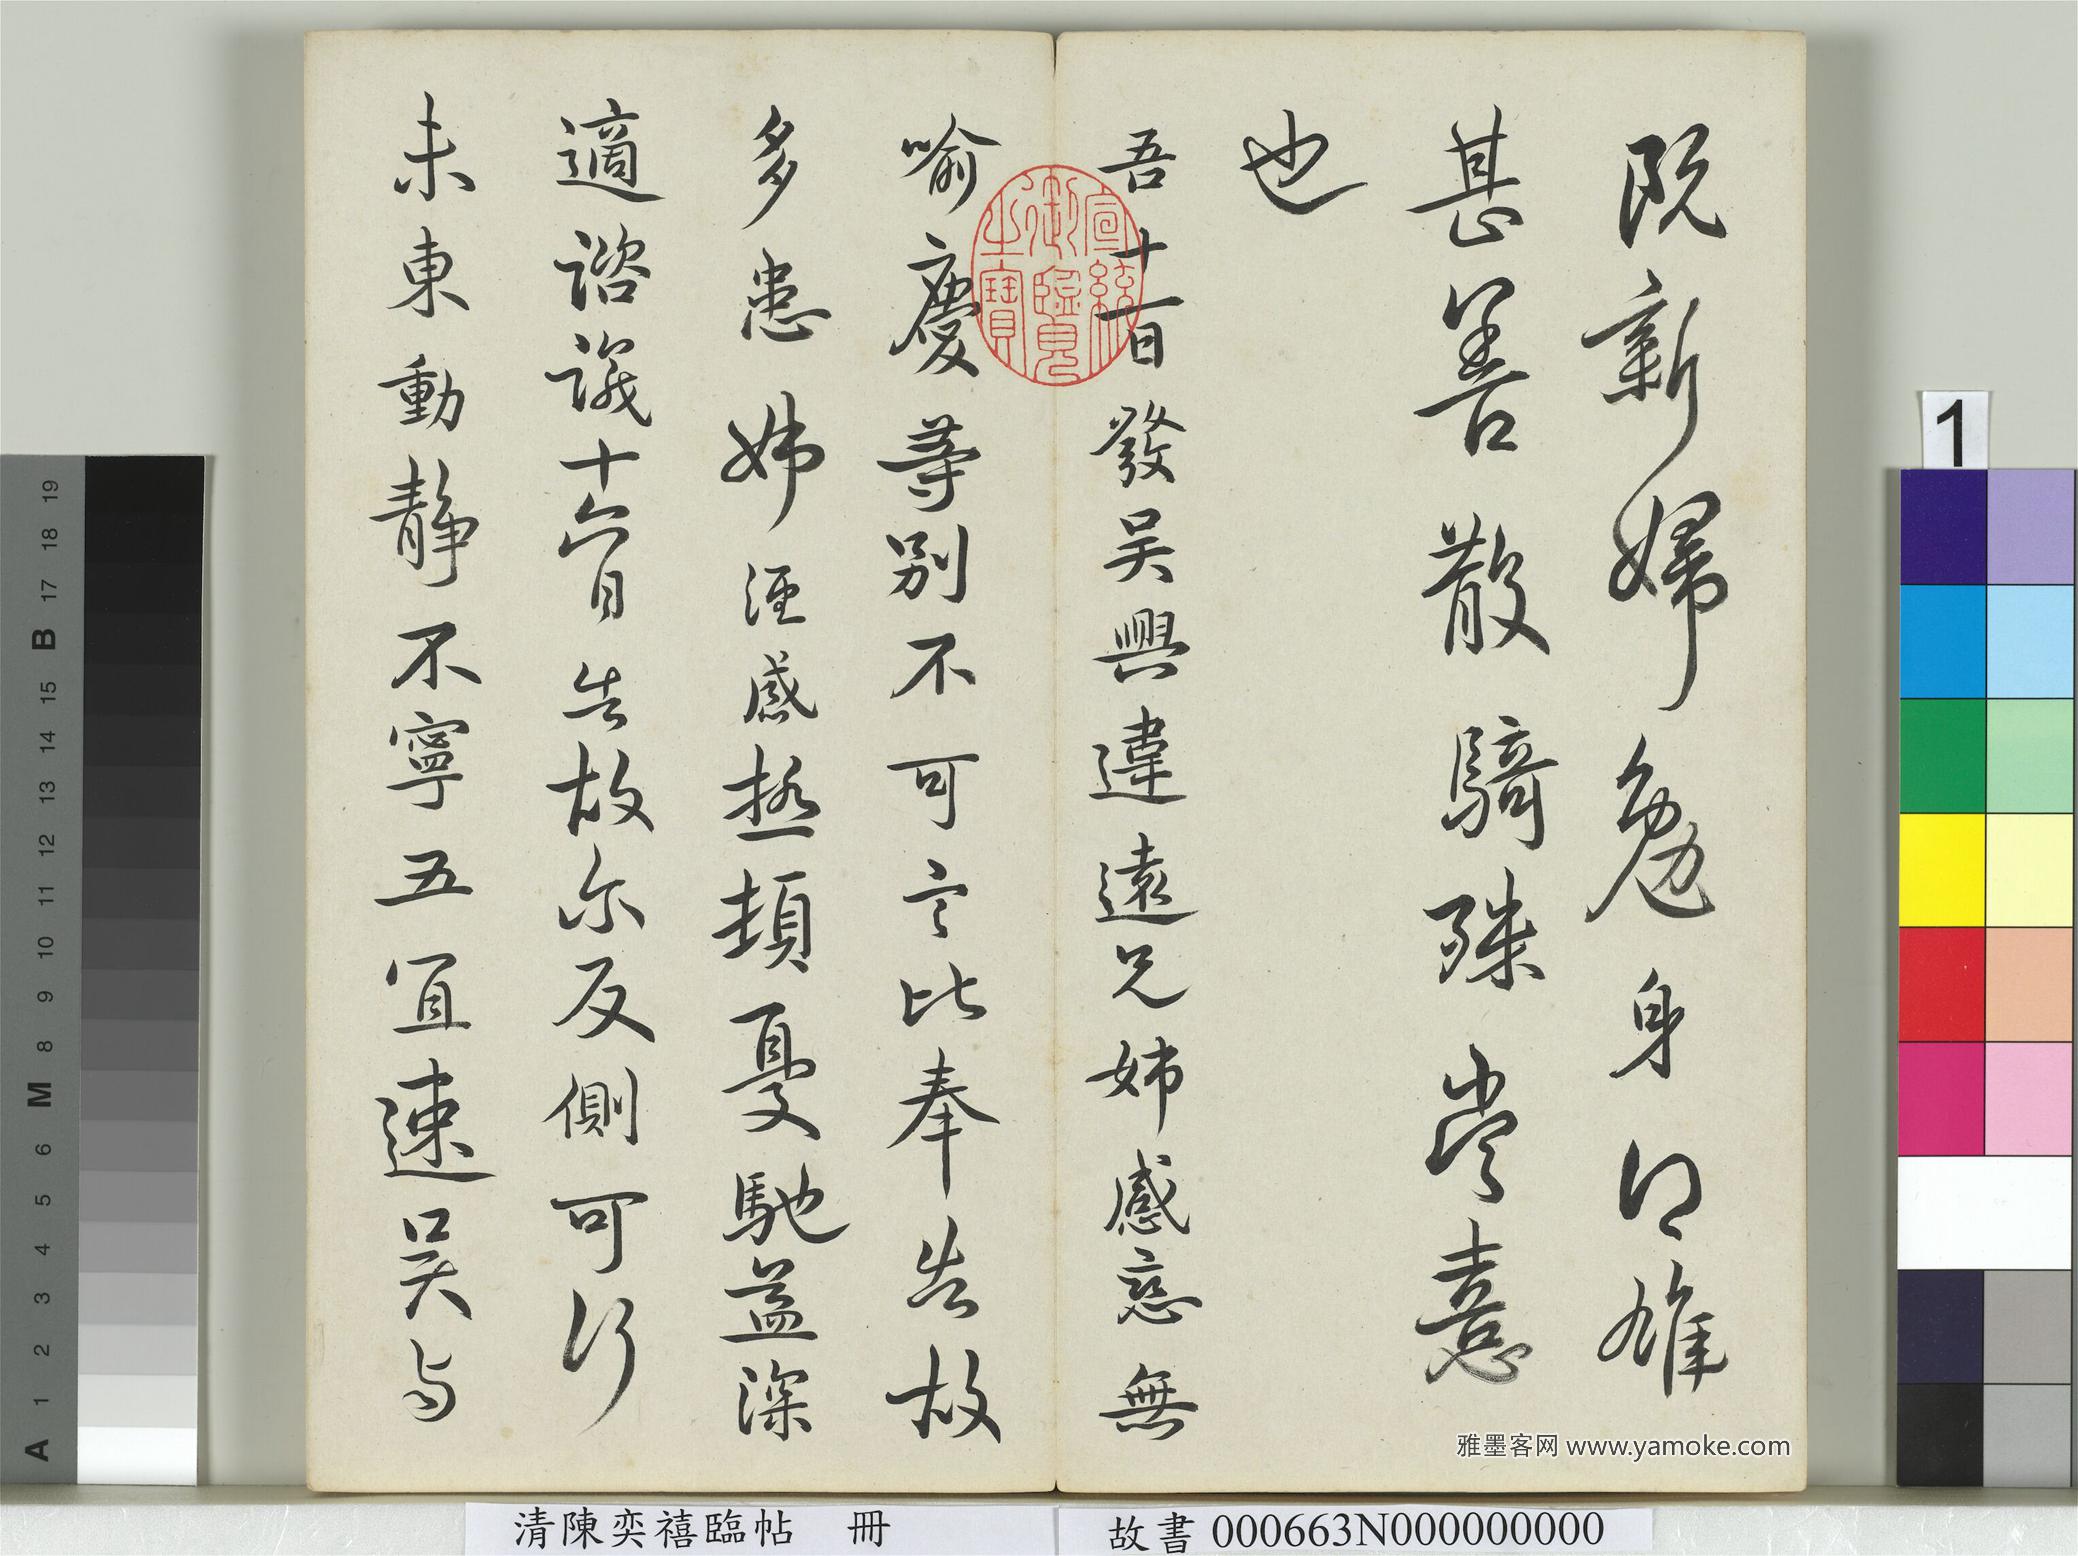 既新婦勉身得雄
甚善散騎殊當憙
也
吾十一日發吳興違遠兄姊感戀無
喻慶等別不可言比奉告故
多患姊經感極頓憂馳益深
適諮議十六日告故尔反側可行
未東動靜不寧五宜速吳与
宣統御覽之寶
雅墨客网 www.yamoke.com
清陳奕禧臨帖 冊
故書 000663N000000000
1
A 1 2 3 4 5 6 M 8 9 10 11 12 13 14 15 B 17 18 19